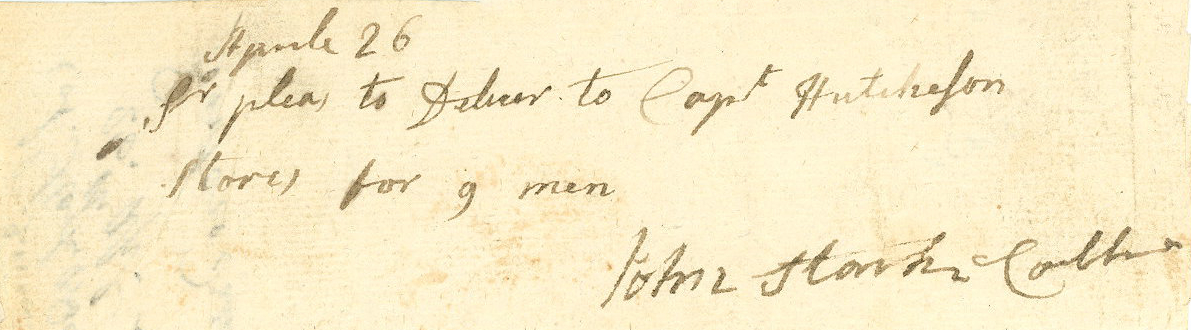 Aprile 26
Sr pleas to Deliver to Capt Hutcheson
Stores for 9 men
John Stark